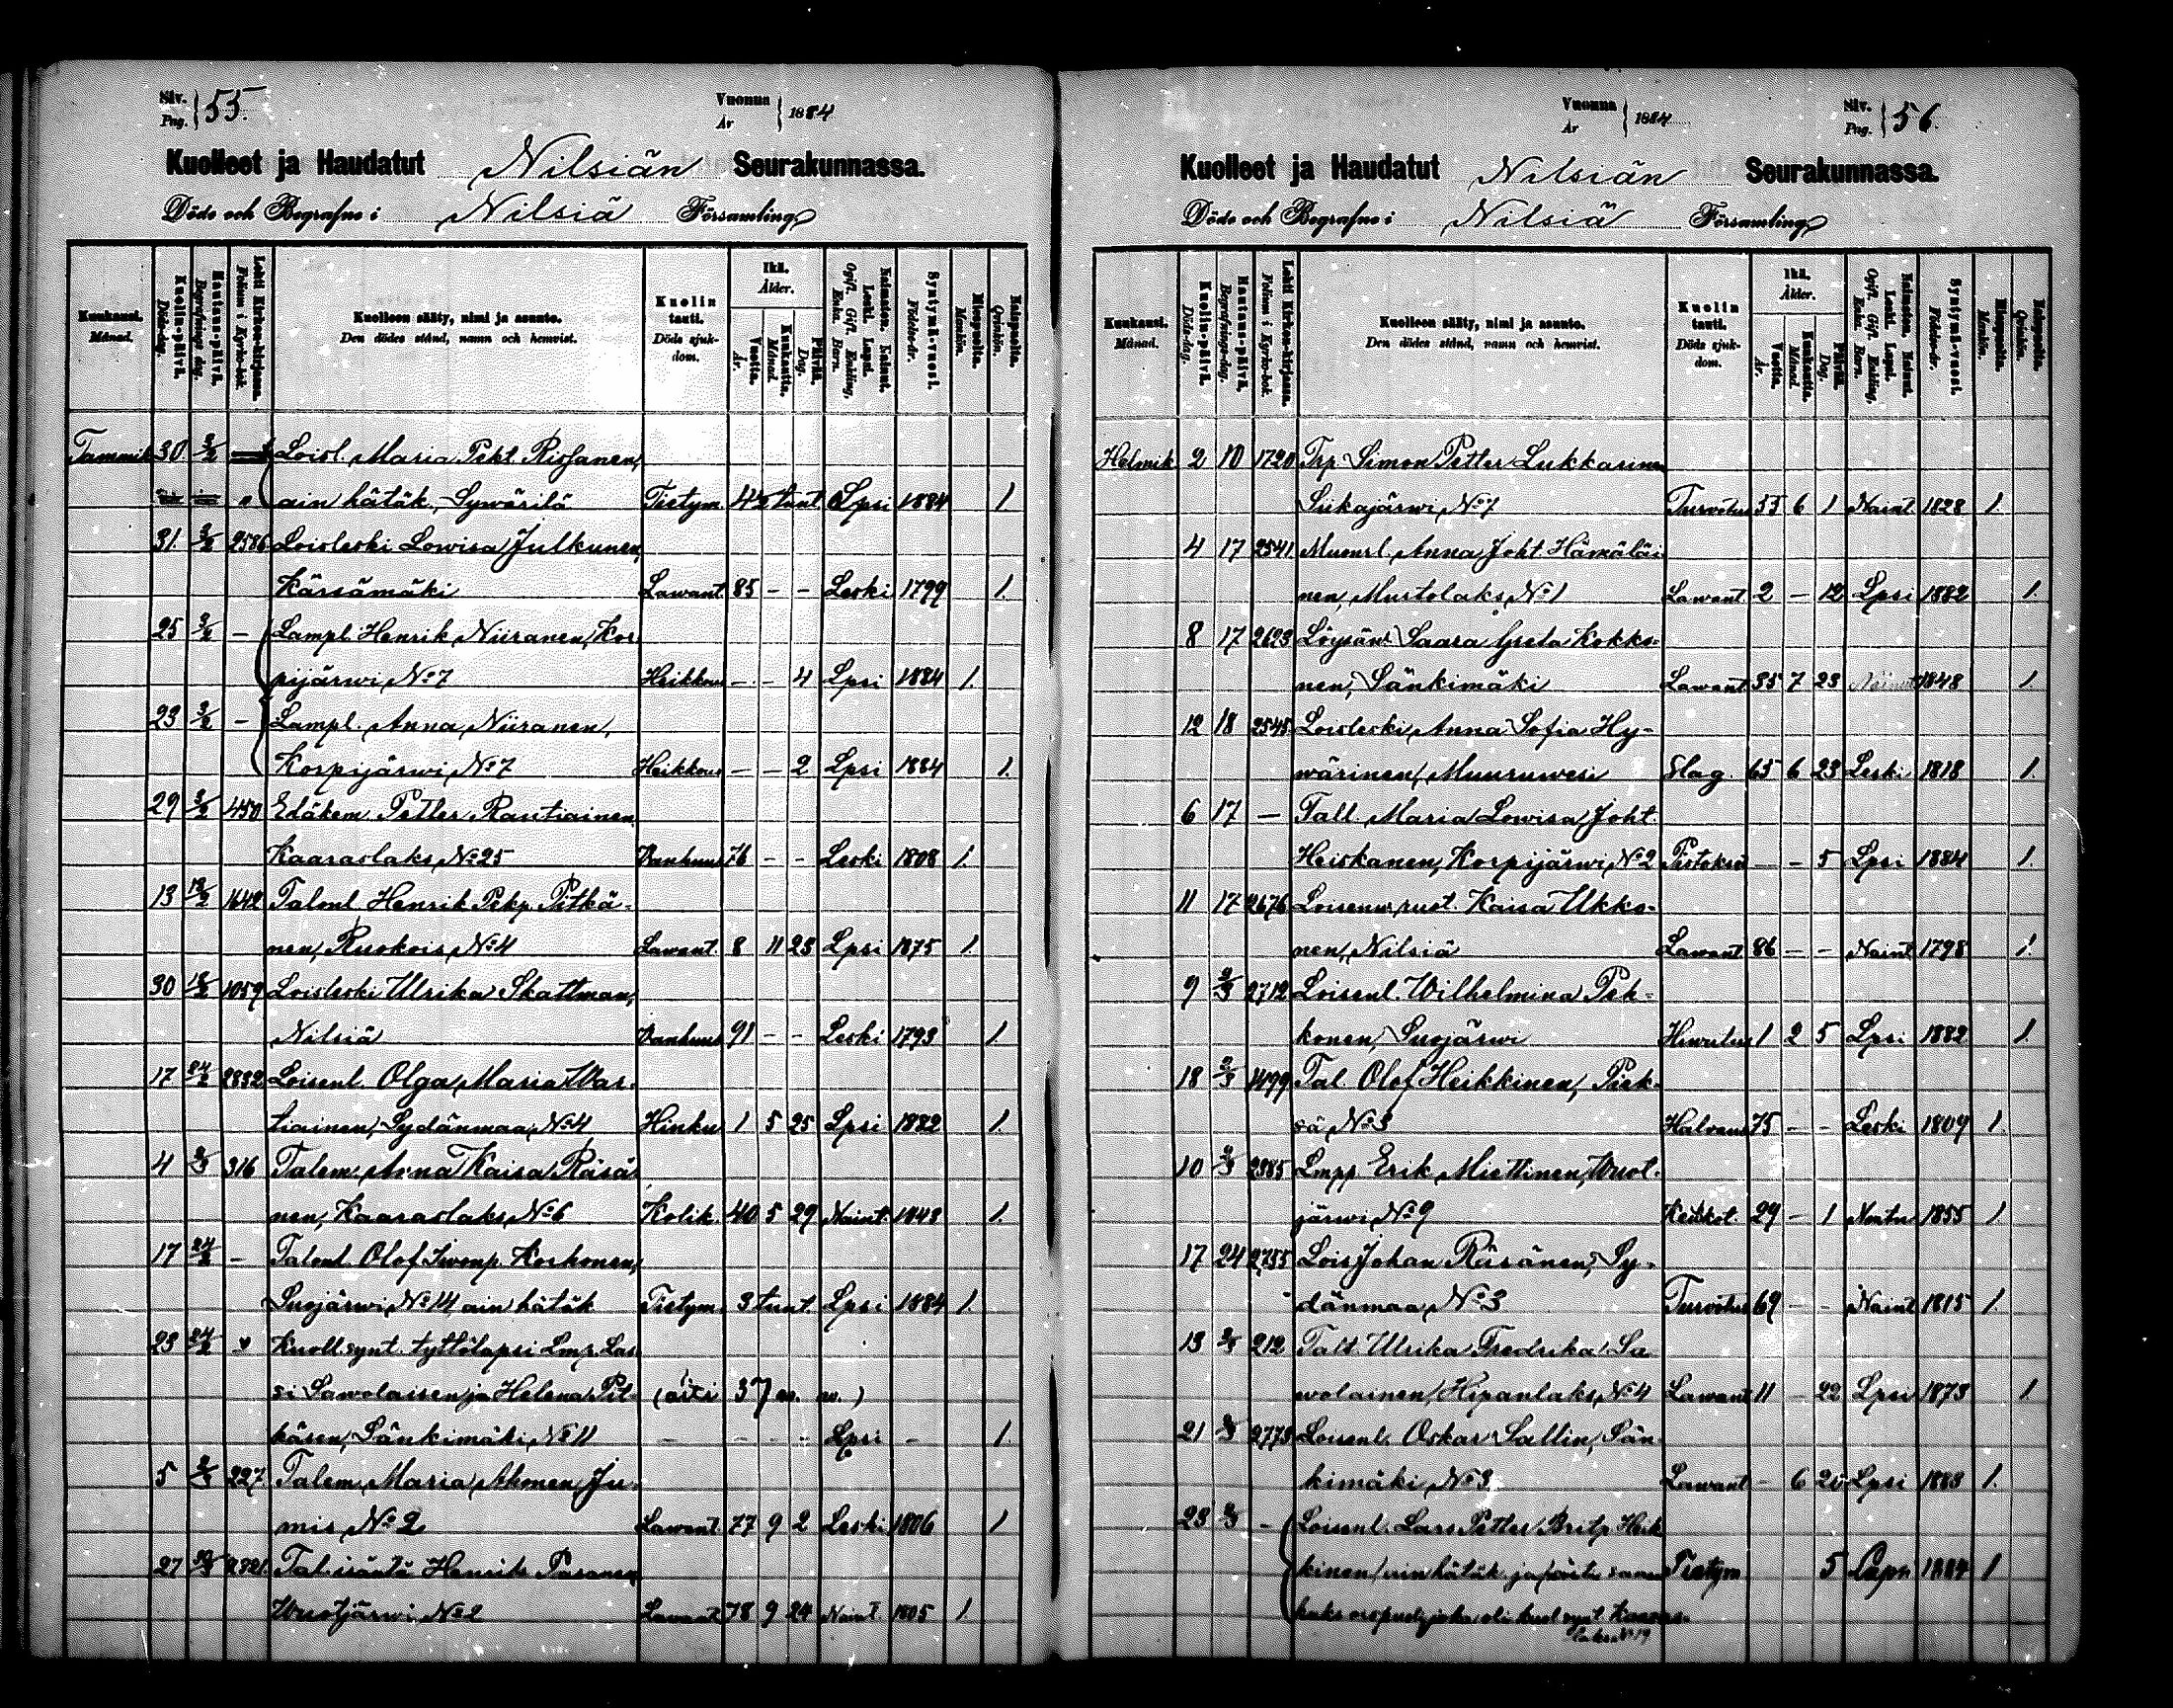 Siv. Pag. } 55.
Vuonna År } 1884
Kuolleet ja Haudatut Nilsiän Seurakunnassa.
Döde och Begrafne i Nilsiä Församling
Kuukausi. Månad.
Kuolin-päivä. Döds-dag.
Hautaus-päivä. Begrafnings dag.
Lehti Kirkon-kirjassa. Folium i Kyrko-bok.
Kuolleen sääty, nimi ja asunto. Den dödes stånd, namn och hemvist.
Kuolin tauti. Döds sjuk-dom.
Ikä. Ålder.
Vuotta. År.
Kuukautta. Månad.
Päivää. Dag.
Naimaton. Nainut. Leski. Lapsi. Ogift. Gift. Enkling. Enka. Barn.
Syntymä-vuosi. Födelse-år.
Miespuolta. Mankön.
Naispuolta. Qvinkön.
Tammik 30 3/2 Loisl. Maria Pekt. Rissanen,
ain hätäk, Sywärilä Tietym. 42 tunt. Lpsi 1884 1
31. 3/2 2586 Loisleski Lowisa Julkunen,
Kärsämäki Lawant. 85 - - Leski 1799 1.
25 3/2 - Lampl. Henrik Niiranen, Kor
pijärwi, No 7 Heikkous - - 4 Lpsi 1884 1.
23 3/2 - Lampl. Anna Niiranen,
Korpijärwi, No 7 Heikkous - - 2 Lpsi 1884 1.
29 3/2 450 Petter Rautiainen
Kaaraslaks, No 25 Vanhuus 76 - - Leski 1808 1.
13 1642 Talonl. Henrik Pekp. Pitkä-
nen, Ruokois, No 4 Lawant. 8 11 23 Lpsi 1875 1.
30 1059 Loisleski Ulrika Skattman,
Nilsiä Vanhuus 91 - - Leski 1793 1.
17 24/2 2832 Loisenl. Olga Maria War-
tiainen, Sydänmaa, No 4 Hinku 1 5 25 Lpsi 1882 1.
4 2/3 316 Talem. Anna Kaisa Räsä
nen, Kaaraslaks, No 6 Kolik. 40 5 29 Naint. 1843 1.
17 24/2 - Talonl. Olof Korhonen,
Suojärwi, No 14, ain hätäk Tietym. 3 tunt. Lpsi 1884 1.
23 24/2 Kuoll. synt. tyttölapsi Lmp. Las
si Sawolaisen ja Helena Pit- (äiti 37 w. w.)
käsen, Sänkimäki, No 11 - - - - Lpsi - 1.
5 2/3 227 Talem. Maria Ahonen, Ju-
mis, No 2 Lawant. 77 9 2 Leski 1806 1
27 2321. Tal. isäntä Henrik Pasanen,
Wuotjärwi, No 2 Lawant. 78 9 24 Naint. 1805 1.
Vuonna År } 1884
Siv. Pag. } 56.
Kuolleet ja Haudatut Nilsiän Seurakunnassa.
Döde och Begrafne i Nilsiä Församling
Kuukausi. Månad.
Kuolin-päivä. Döds-dag.
Hautaus-päivä. Begrafnings-dag.
Lehti Kirkon-kirjassa. Folium i Kyrko-bok.
Kuolleen sääty, nimi ja asunto. Den dödes stånd, namn och hemvist.
Kuolin tauti. Döds sjuk-dom.
Ikä. Ålder.
Vuotta. År.
Kuukautta. Månad.
Päivää. Dag.
Naimaton. Nainut. Leski. Lapsi. Ogift. Gift. Enkling. Enka. Barn.
Syntymä-vuosi. Födelse-år.
Miespuolta. Mankön.
Naispuolta. Qvinkön.
Helmik 2 10 1720 Trp. Simon Petter Lukkarinen
Siikajärwi, No 7 Turvotus 55 6 1 Naint. 1828 1.
4 17 2541. Anna Joht. Hämäläi-
nen, Murtolaks, No 1 Lawant. 2 - 12 Lpsi 1882 1.
8 17 2693 Saara Greta Kokko-
nen, Sänkimäki Lawant. 35 7 23 Naint. 1848 1.
12 18 2545. Loisleski Anna Sofia Hy-
wärinen, Muuruwesi Slag. 65 6 23 Leski 1818 1.
6 17 - Tall. Maria Lowisa Joht.
Heiskanen, Korpijärwi, No 2 Pistoksia - - 5 Lpsi 1884 1.
11 17 2676 Kaisa Ukko-
nen, Nilsiä Lawant. 86 - - Naint. 1798 1.
9 2/3 2712 Loisenl. Wilhelmina Pek-
konen, Suojärwi 1 2 5 Lpsi 1882 1.
18 2/3 1499 Tal. Olof Heikkinen, Piek-
sä, No 3 Halvaus 75 - - Leski 1809 1.
10 2/3 2385 Lmpp. Erik Miettinen, Wuot-
järwi, No 9 Keuhkot. 29 - 1 1855 1
17 24 2755 Lois Johan Räsänen, Sy-
dänmaa, No 3 Turvotus 69 - - Naint 1815 1.
13 212 Talt. Ulrika Fredrika Sa
wolainen, Hipanlaks, No 4 Lawant 11 - 22 Lpsi 1873 1
21 2773 Loisenl. Oskar Sallin, Sän-
kimäki, No 3 Lawant - 6 Lpsi 1883 1.
23 - Loisenl. Lars Petter Heik
kinen, ain hätäk. ja Tietym 5 Lapsi 1884 1
joka oli kuol. synt. Kaaras-
laks No 19